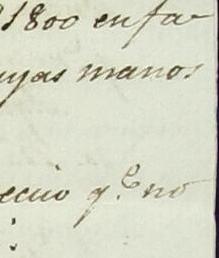 1800 en fa-
uyas manos
ecio q.e no